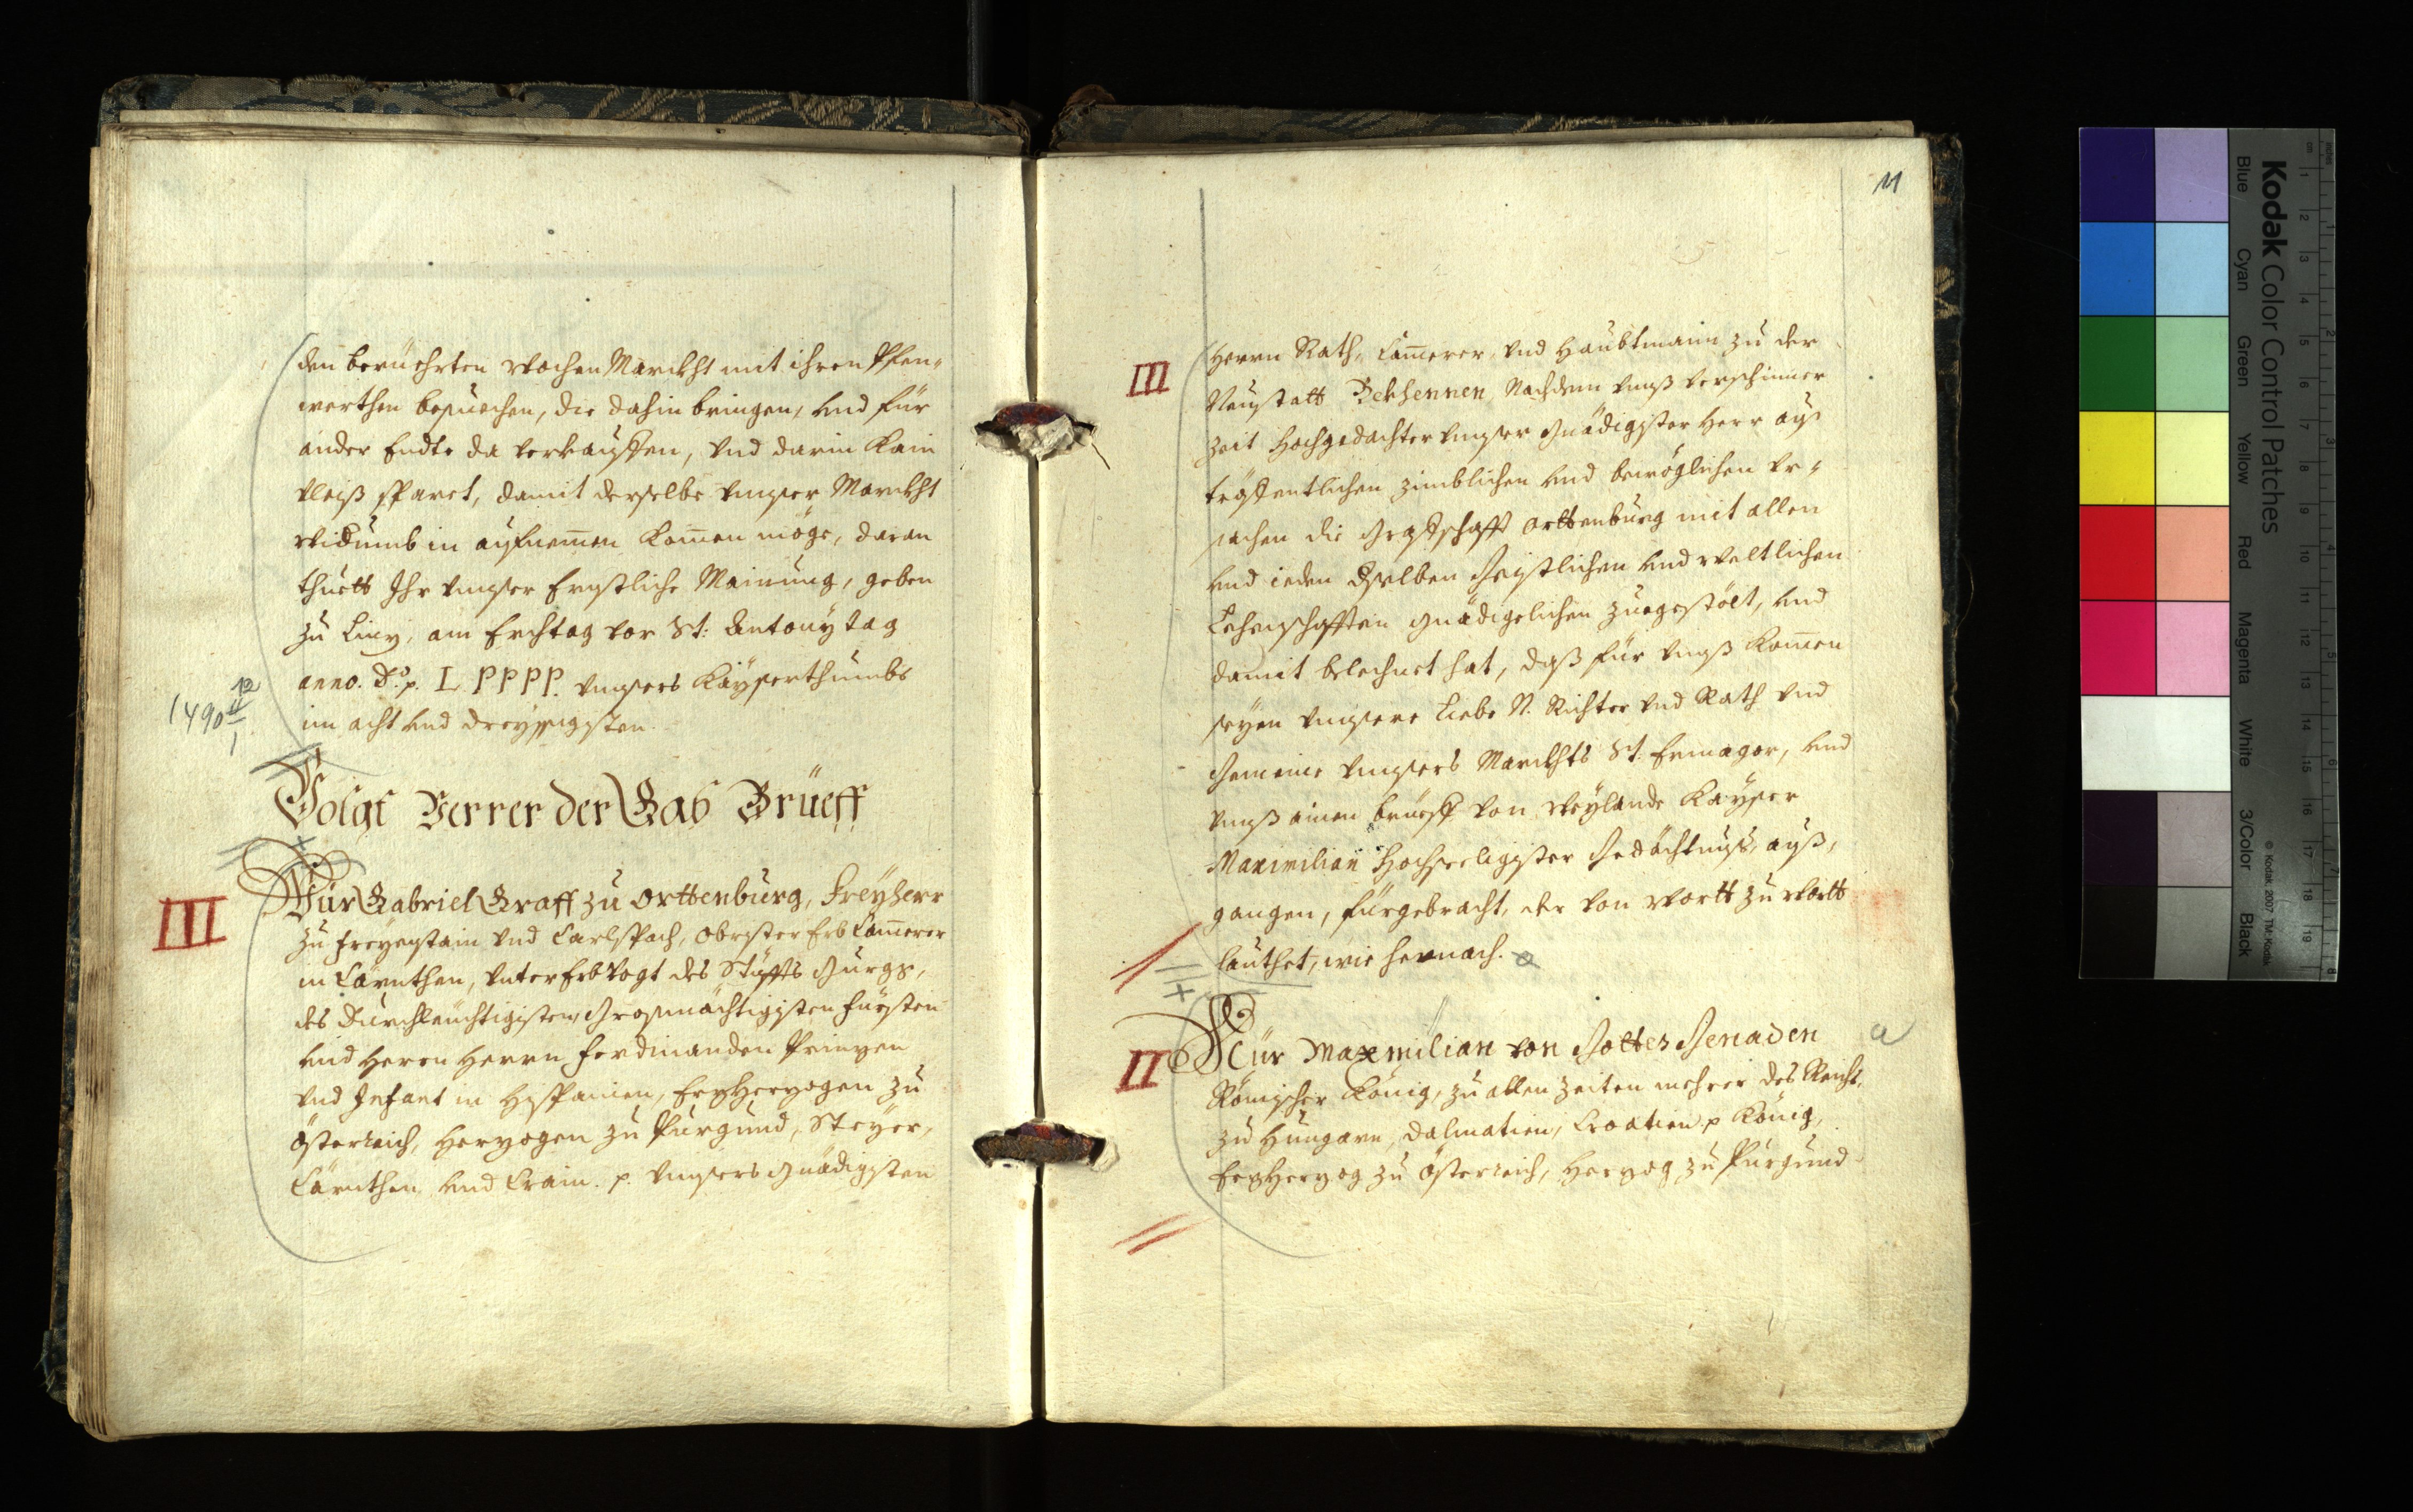 den berüehrten Wochen Marckht mit ihren Pfen-
werthen besuechen, die dahin bringen, und für
ander Endte da verkauffen, und darin kain
vleiß sparet, damit derselbe unnser Marckht
Widumb in aufnemen komen möge, daran
thuett Ihr unnser Ernstliche Mainung, geben
zu Linz, am Erchtag vor St: Antony tag
anno. D. p. L PPPP. unnsers Kayserthumbs
im acht und dreyssigisten.
1490 12/1
Volgt Ferrer der Gab Brüeff
III
Wür Gabriel Graff zu Orttenburg, Freyherr
zu Freyenstain und Carlspach, Obrister Erb Camerer
in Cärnthen, unter Erb Vogt des Stüffts Gurgg,
des Durchleuchtigisten, Grosmächtigisten Fürsten
und Herrn Herrn Ferdinanden Prinzen
und Infant in Hispanien, Erzherzogen zu
Österreich, Herzogen zu Burgund, Steyer,
Cärnthen und Crain. p. unnsers Gnädigisten
11
III
Herrn Rath, Camerer, und Haubtmann zu der
Neustatt Bekhennen Nachdem unnß verschinner
Zeit Hochgedachter unnser Gnädigister Herr aus
träffentlichen zimblichen und bewöglichen Ur-
sachen die Graffschafft Orttenburg mit allen
und ieden derselben Geistlichen und weltlichen
Lehenschafften gnädigelichen zuegestölt, und
damit belechnet hat, daß für unnß komen
seyen unnsere Liebe N. Richter und Rath und
Gemeine unnsers Marckhts St: Ermagor, und
unnß ainen brüeff von Weylande Kayser
Maximilian Hochseeligister Gedächtnus, auß,
gangen, fürgebracht, der von Wortt zu Wortt
lauthet, wie hernach. a
II
Wür Maxmilian von Gottes Genaden a
Römischer König, zu allen Zeiten mehrer des Reichs,
zu Hungarn, Dalmatien, Croatien p König,
Erzherzog zu Österreich, Herzog zu Burgund
Kodak Color Control Patches
© Kodak, 2007 TM: Kodak
Blue Cyan Green Yellow Red Magenta White 3/Color Black